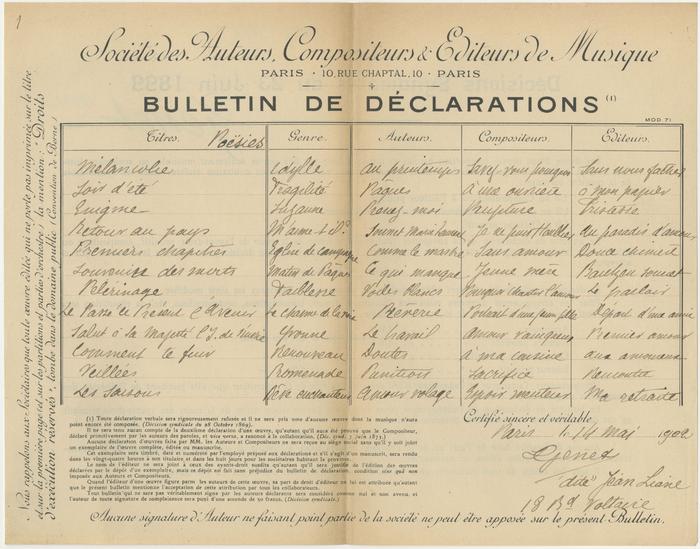 1
Société des Auteurs, Compositeurs & Editeurs de Musique
PARIS · 10, RUE CHAPTAL, 10 · PARIS
BULLETIN DE DÉCLARATIONS (1)
MOD. 71
Titres. Poësies Genre. Auteurs. Compositeurs. Editeurs.
Mélancolie Idylle au printemps Savez-vous pourquoi Sans nous fâcher
Soir d'été Fragilité Vagues à une ouvrière à mon
Enigme Suzanne moi Tristesse
Retour au pays Sonnet au paradis d'amour
Premiers chapitres Eglise de campagne Comme le Sans amour Douce chimère
Souvenirs des morts Matin de Pâques Ce qui manque Jeune
Pèlerinage Faiblesse Voiles blancs Pourquoi chanter l'amour Le
Le Passé le Présent l'Avenir Le charme de la Rêverie Portrait d'une jeune fille Départ d'une amie
Salut à la Majesté Yvonne Le travail Amour vainqueur Premier amour
Comment le fuir Renouveau Doutes à ma cousine aux amoureux
Veillées Promenade Punition Sacrifice Remontée
Les Saisons Rêve enchanteur Amour volage Espoir menteur Ma retraite
(1) Toute déclaration verbale sera rigoureusement refusée et il ne sera pris note d'aucune œuvre dont la musique n'aura
point encore été composée. (Décision syndicale du 28 Octobre 1869).
Il ne sera tenu aucun compte de la deuxième déclaration d'une œuvre, qu'autant qu'il aura été prouvé que le Compositeur,
déclaré primitivement par les auteurs des paroles, et vice versa, a renoncé à la collaboration. (Déc. synd. 7 juin 1873.)
Aucune déclaration d'œuvres faite par MM. les Auteurs et Compositeurs ne sera admise au siège social sans qu'il y soit joint
un exemplaire de l'œuvre complète, éditée ou manuscrite.
Cet exemplaire sera timbré, daté et numéroté par l'employé préposé aux déclarations et s'il s'agit d'un manuscrit, sera rendu
dans les vingt-quatre heures à son titulaire et dans les huit jours pour les sociétaires habitant la province.
Le nom de l'éditeur ne sera joint à ceux des ayants-droit susdits qu'autant qu'il sera justifié de l'édition des œuvres
déclarées par le dépôt d'un exemplaire, mais ce dépôt est fait sans préjudice du bulletin de déclaration, condition sine quâ non
imposée aux Auteurs et Compositeurs.
Quand l'éditeur d'une œuvre figure parmi les auteurs de cette œuvre, sa part de droit d'éditeur ne lui est attribuée qu'autant
que le présent bulletin mentionne l'acceptation de cette attribution par tous les collaborateurs.
Tout bulletin qui ne sera pas véritablement signé par les auteurs déclarés sera considéré comme nul et non avenu, et
l'auteur de toute signature de complaisance sera puni d'une amende de 20 francs. (Décision syndicale.)
Certifié sincère et véritable,
Paris, le 14 Mai 1902
Genet
dite "Jean Liane
18 Bd Voltaire
Aucune signature d'Auteur ne faisant point partie de la société ne peut être apposée sur le présent Bulletin.
Nous rappelons aux Sociétaires que toute œuvre éditée qui ne porte pas imprimée sur le titre
et sur la première page (et sur les partitions et parties d'orchestre) la mention : "Droits
d'exécution réservés", tombe dans le domaine public (Convention de Berne)